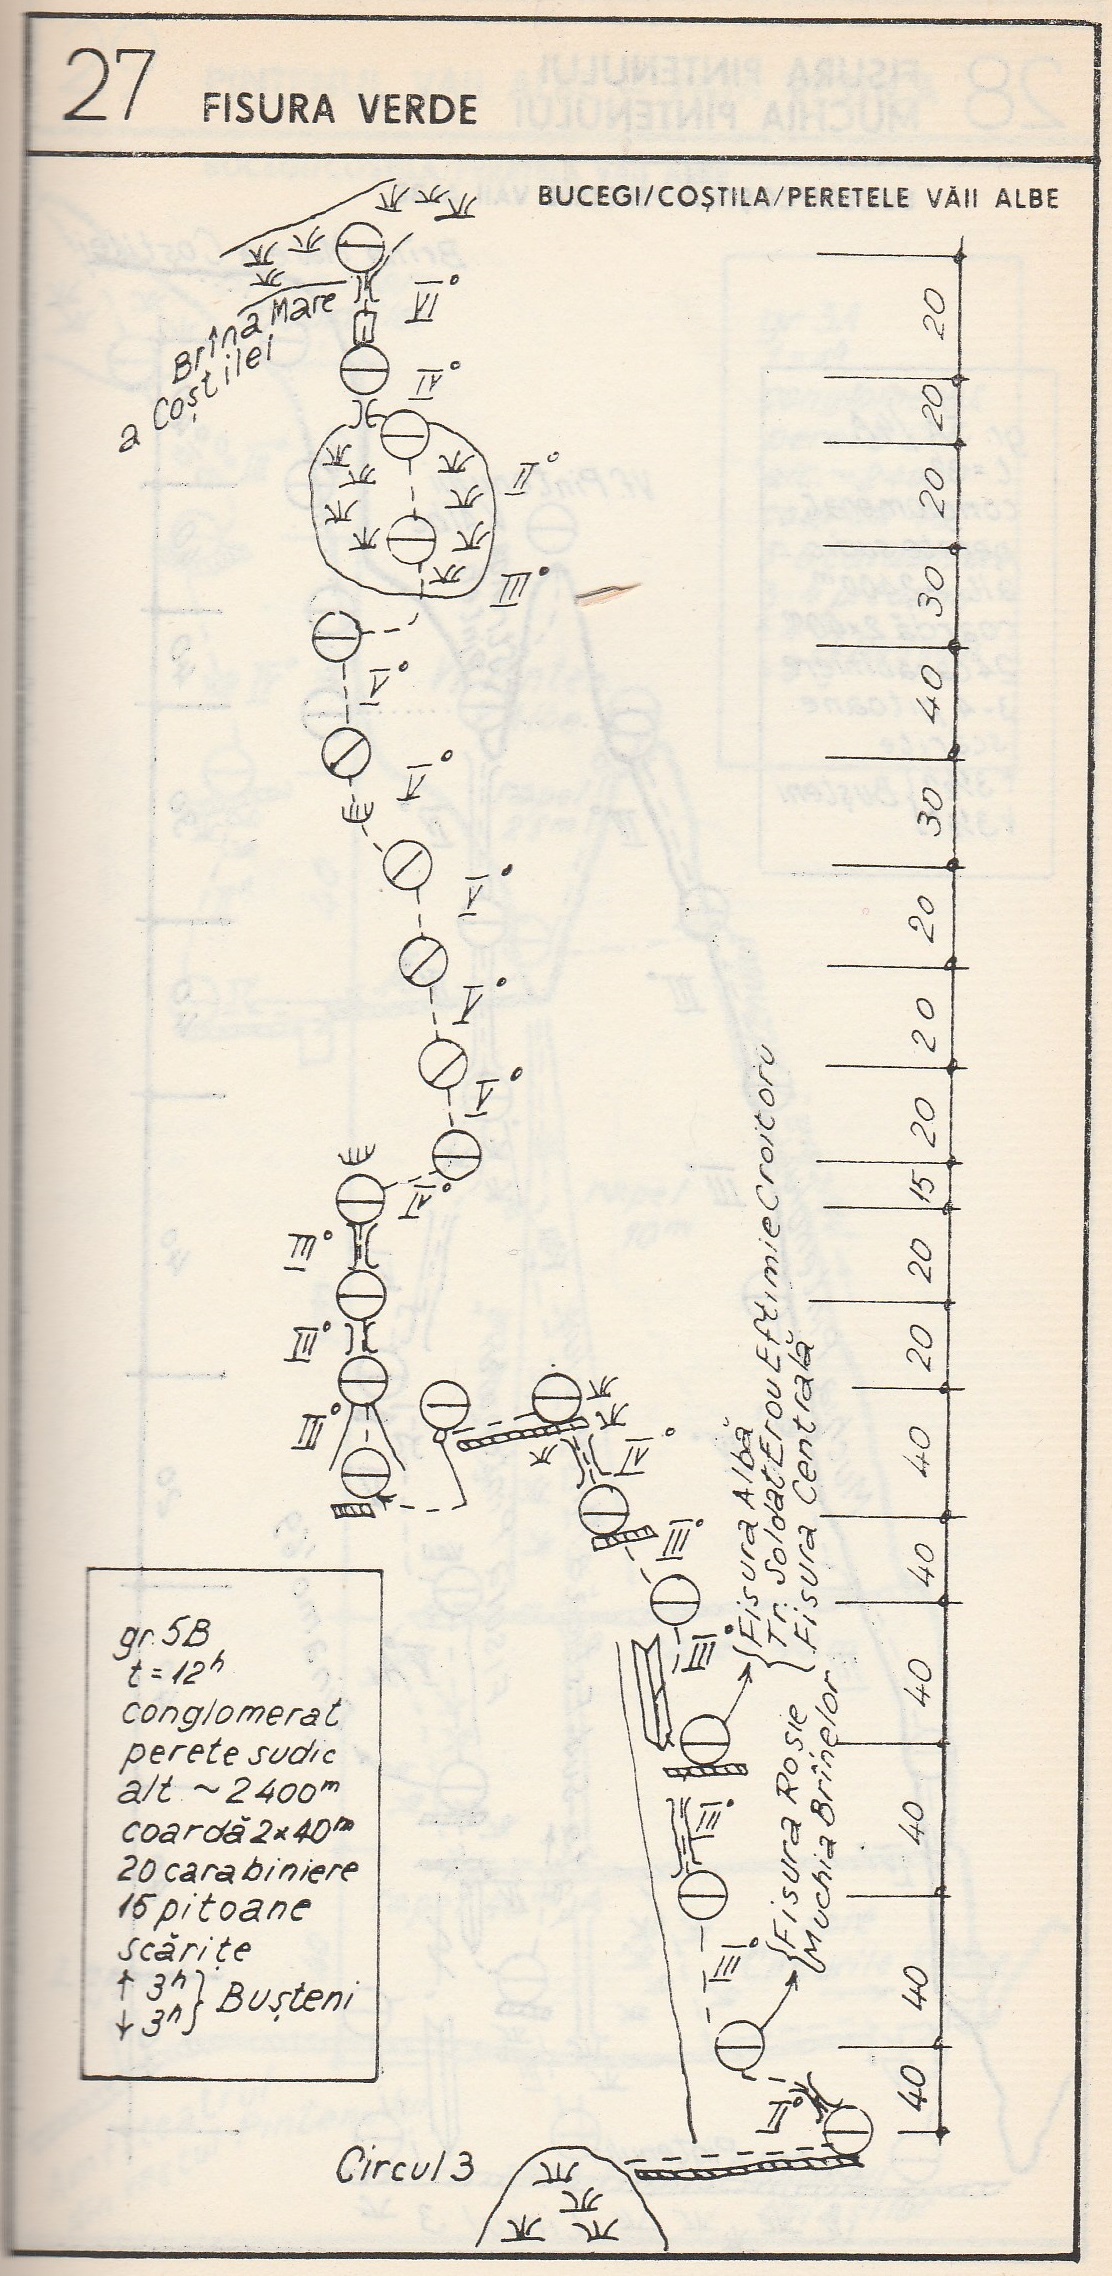 27
FISURA VERDE
BUCEGI/COȘTILA/PERETELE VĂII ALBE
Brîna Mare
a Coștilei
VI°
IV°
II°
III°
V°
V°
V°
V°
V°
IV°
III°
III°
III°
IV°
III°
III°
III°
III°
III°
20
20
20
30
40
30
20
20
20
15
20
20
40
40
40
40
40
40
Fisura Albă
Tr. Soldat Erou Eftimie Croitoru
Fisura Centrală
Fisura Roșie
Muchia Brînelor
gr. 5B
t = 12h
conglomerat
perete sudic
alt. ~ 2400m
coardă 2x40m
20 carabiniere
15 pitoane
scărițe
↑ 3h } Bușteni
↓ 3h
Circul 3